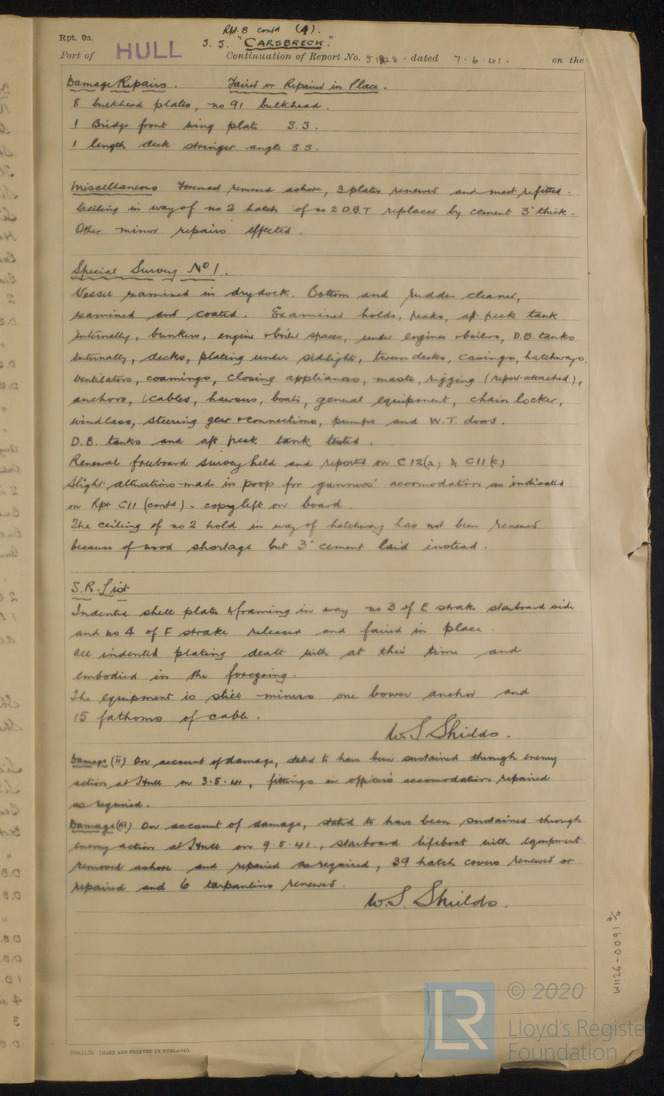 Rpt. 8 contd (4).
Rpt. 9a.
S.S. "CARSBRECK"
Port of HULL Continuation of Report No. 51828 dated 7.6.41. on the
Damage Repairs. Faired or Repaired in Place.
8 bulkhead plates, no 91 bulkhead.
1 Bridge front wing plate S.S.
1 length deck stringer angle S.S.
Miscellaneous Foremast removed ashore, 3 plates renewed and mast refitted.
Ceiling in way of no 2 hatch of no 2 D.B.T replaced by cement 3" thick.
Other minor repairs effected.
Special Survey No 1.
Vessel examined in drydock. Bottom and rudder cleaned,
examined and coated. Examined holds, peaks, aft peak tank
internally, bunkers, engine & boiler spaces, under engines & boilers, D.B. tanks
internally, decks, plating under sidelights, tween decks, casings, hatchways,
ventilators, coamings, closing appliances, masts, rigging (report attached),
anchors, cables, hawsers, boats, general equipment, chain locker,
windlass, steering gear & connections, pumps and W.T. doors.
D.B. tanks and aft peak tank tested.
Renewal freeboard survey held and reported on C12(a) & C11(c)
Slight altrations made in poop for gunners' accomodation as indicated
on Rpt C11 (contd) - copy left on board.
The ceiling of no 2 hold in way of hatchway has not been renewed
because of wood shortage but 3" cement laid instead.
S.R. List
Indented shell plate & framing in way no 3 of E strake starboard side
and no 4 of F strake released and faired in place.
All indented plating dealt with at this time and
embodied in the foregoing.
The equipment is still minus one bower anchor and
15 fathoms of cable.
W. S Shields.
Damage (ii) On account of damage, stated to have been sustained through enemy
action at Hull on 3.5.41, fittings in officers accomodation repaired
as required.
Damage (iii) On account of damage, stated to have been sustained through
enemy action at Hull on 9.5.41., starboard lifeboat with equipment
removed ashore and repaired as required, 39 hatch covers renewed or
repaired and 6 tarpaulins renewed.
W. S. Shields.
W1126-0091
(MADE AND PRINTED IN ENGLAND)
LR
© 2020
Lloyd's Register
Foundation